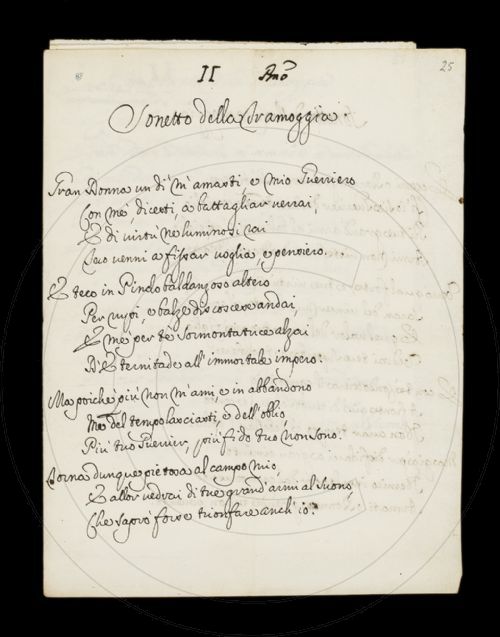 II Anº
25
Sonetto della Tramoggia.
Gran Donna un dì m'amasti, e mio Guerriero
Con me, dicesti, a battagliar verrai,
E di virtù ne luminosi rai
Teco venni a fissar voglia, e pensiero.
E teco in Pindo baldanzoso altero
Per rupi, e balze discoscese andai,
E me per te sormontatrice alzai
D'Eternitade all'immortale impero:
Ma poiche più non m'ami, e in abbandono
Me del tempo lasciasti, e dell'oblio,
Più tuo Guerrier, più fido tuo non sono.
Torna dunque pietosa al campo mio,
E allor vedrai di tue grand'armi al suono,
Che saprò forse trionfare anch'io.